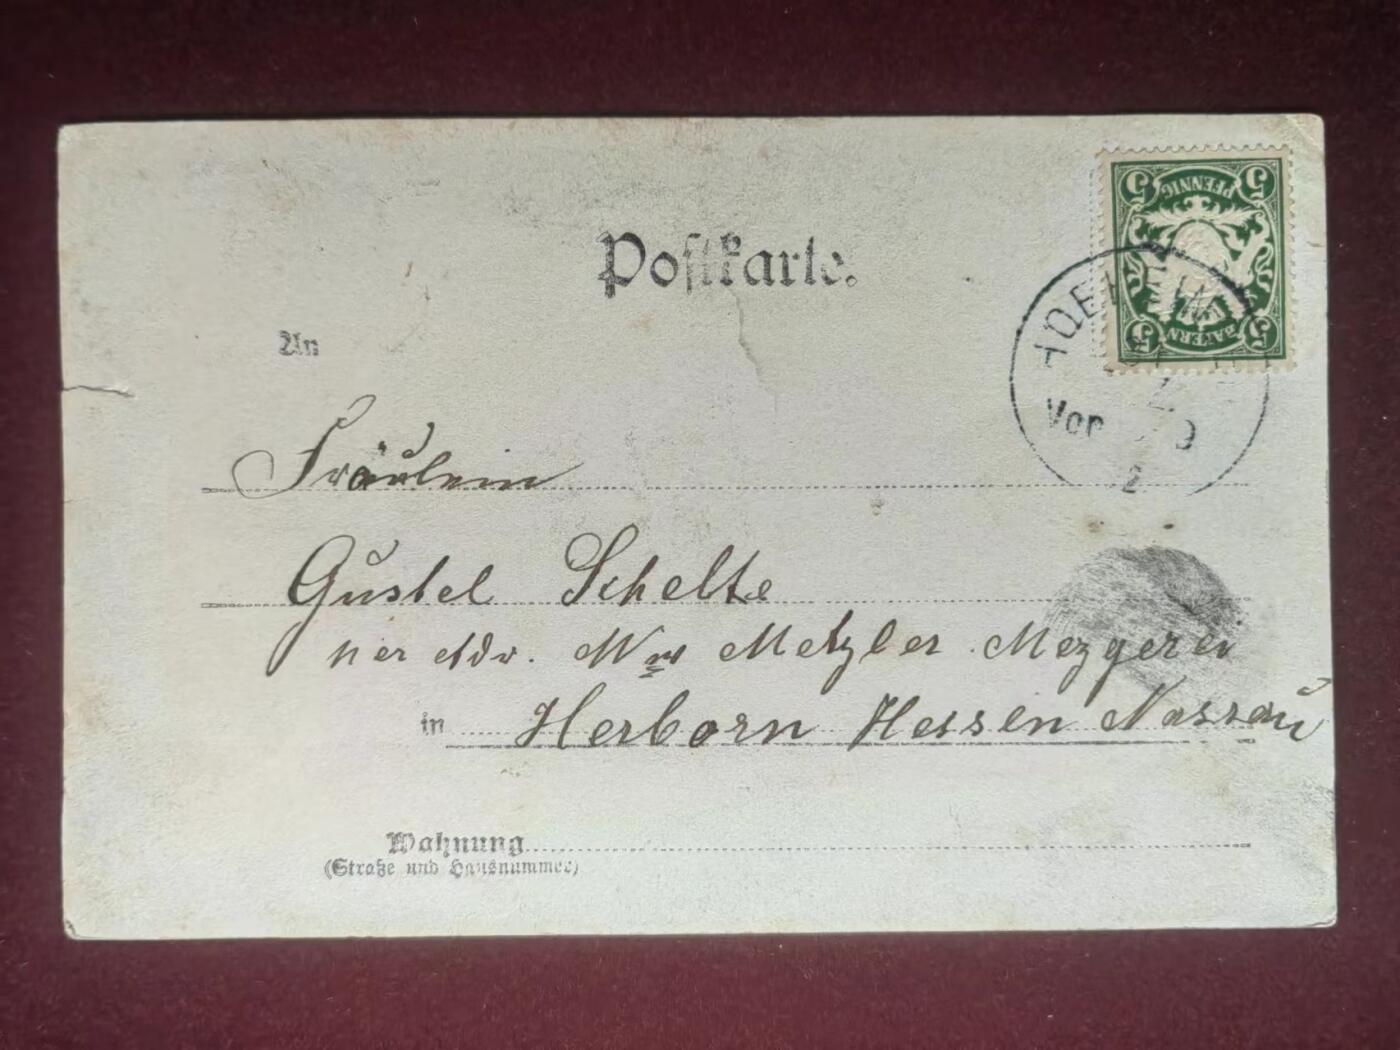 Postkarte.
5 PFENNIG 5
5 BAYERN 5
Vor
An
Fräulein
Gustel Schelte
per Adr. Metzler Mezgerei
in Herborn Hessen Nassau
Wohnung
(Straße und Hausnummer)